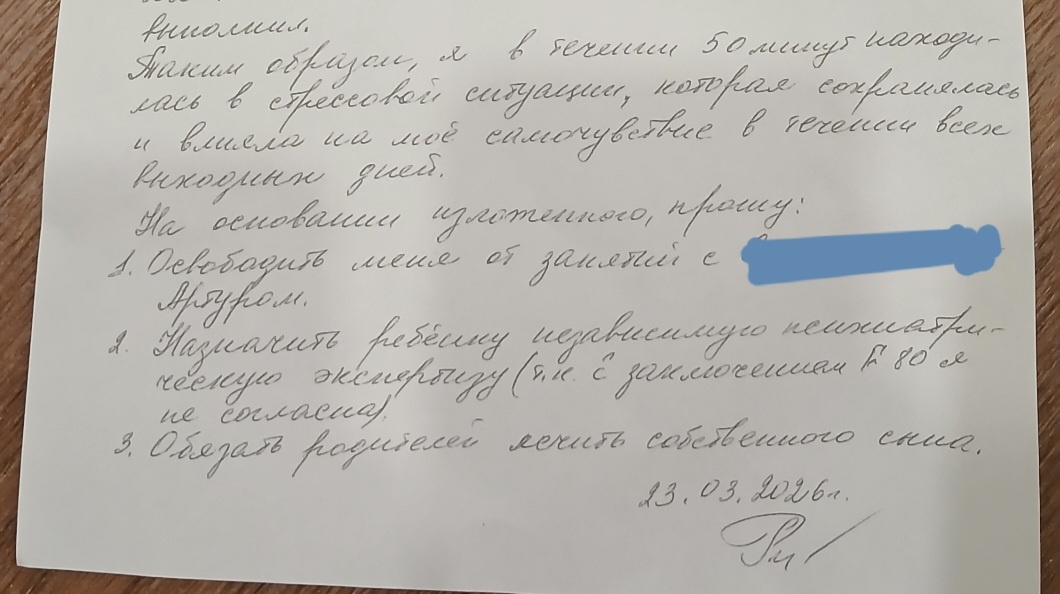 выполнил.
Таким образом, я в течении 50 минут находи-
лась в стрессовой ситуации, которая сохранялась
и влияла на моё самочувствие в течении всех
выходных дней.
На основании изложенного, прошу:
1. Освободить меня от занятий с
Артуром.
2. Назначить ребёнку независимую психиатри-
ческую экспертизу (т.к. с заключением F 80 я
не согласна).
3. Обязать родителей лечить собственного сына.
23.03.2026г.